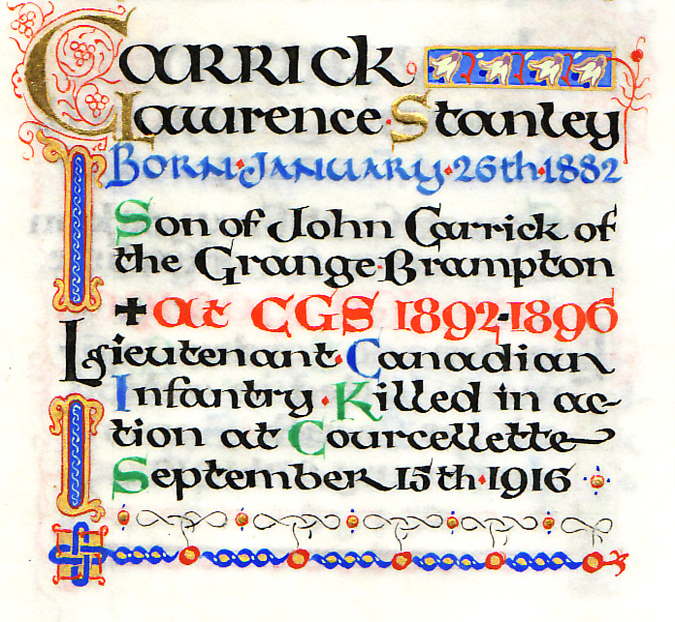 Carrick
Lawrence·Stanley
Born·January·26th·1882
Son of John Carrick of
the Grange·Brampton
✝at CGS 1892·1896
Lieutenant·Canadian
Infantry·Killed in ac-
tion at Courcellette
September 15th·1916